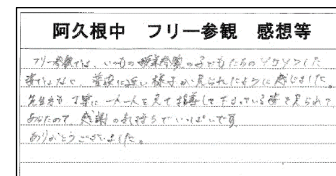 阿久根中　フリー参観　感想等
フリー参観では、いつもの授業参観の子どもたちのソワソワした
姿ではなく、普段に近い様子が見られたように感じました。
先生方も丁寧に一人一人を見て指導して下さっている姿で見られて
感謝の気持ちでいっぱいです
ありがとうございました。